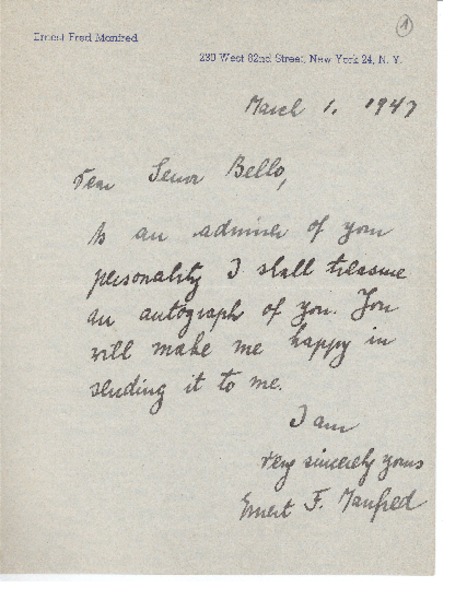 1
Ernest Fred Manfred
230 West 82nd Street, New York 24, N. Y.
March 1. 1947
Dear Senor Bello,
As an admirer of your
personality I shall treasure
an autograph of you. You
will make me happy in
sending it to me.
I am
Very sincerely yours
Ernest F. Manfred